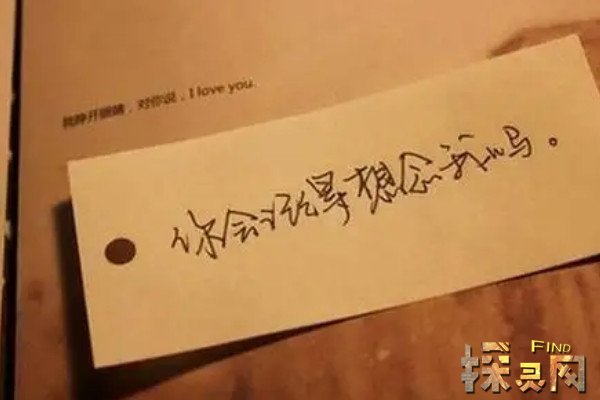 我睁开眼睛，对你说，I love you.
你会记得想念我吗。
FIND
探灵网